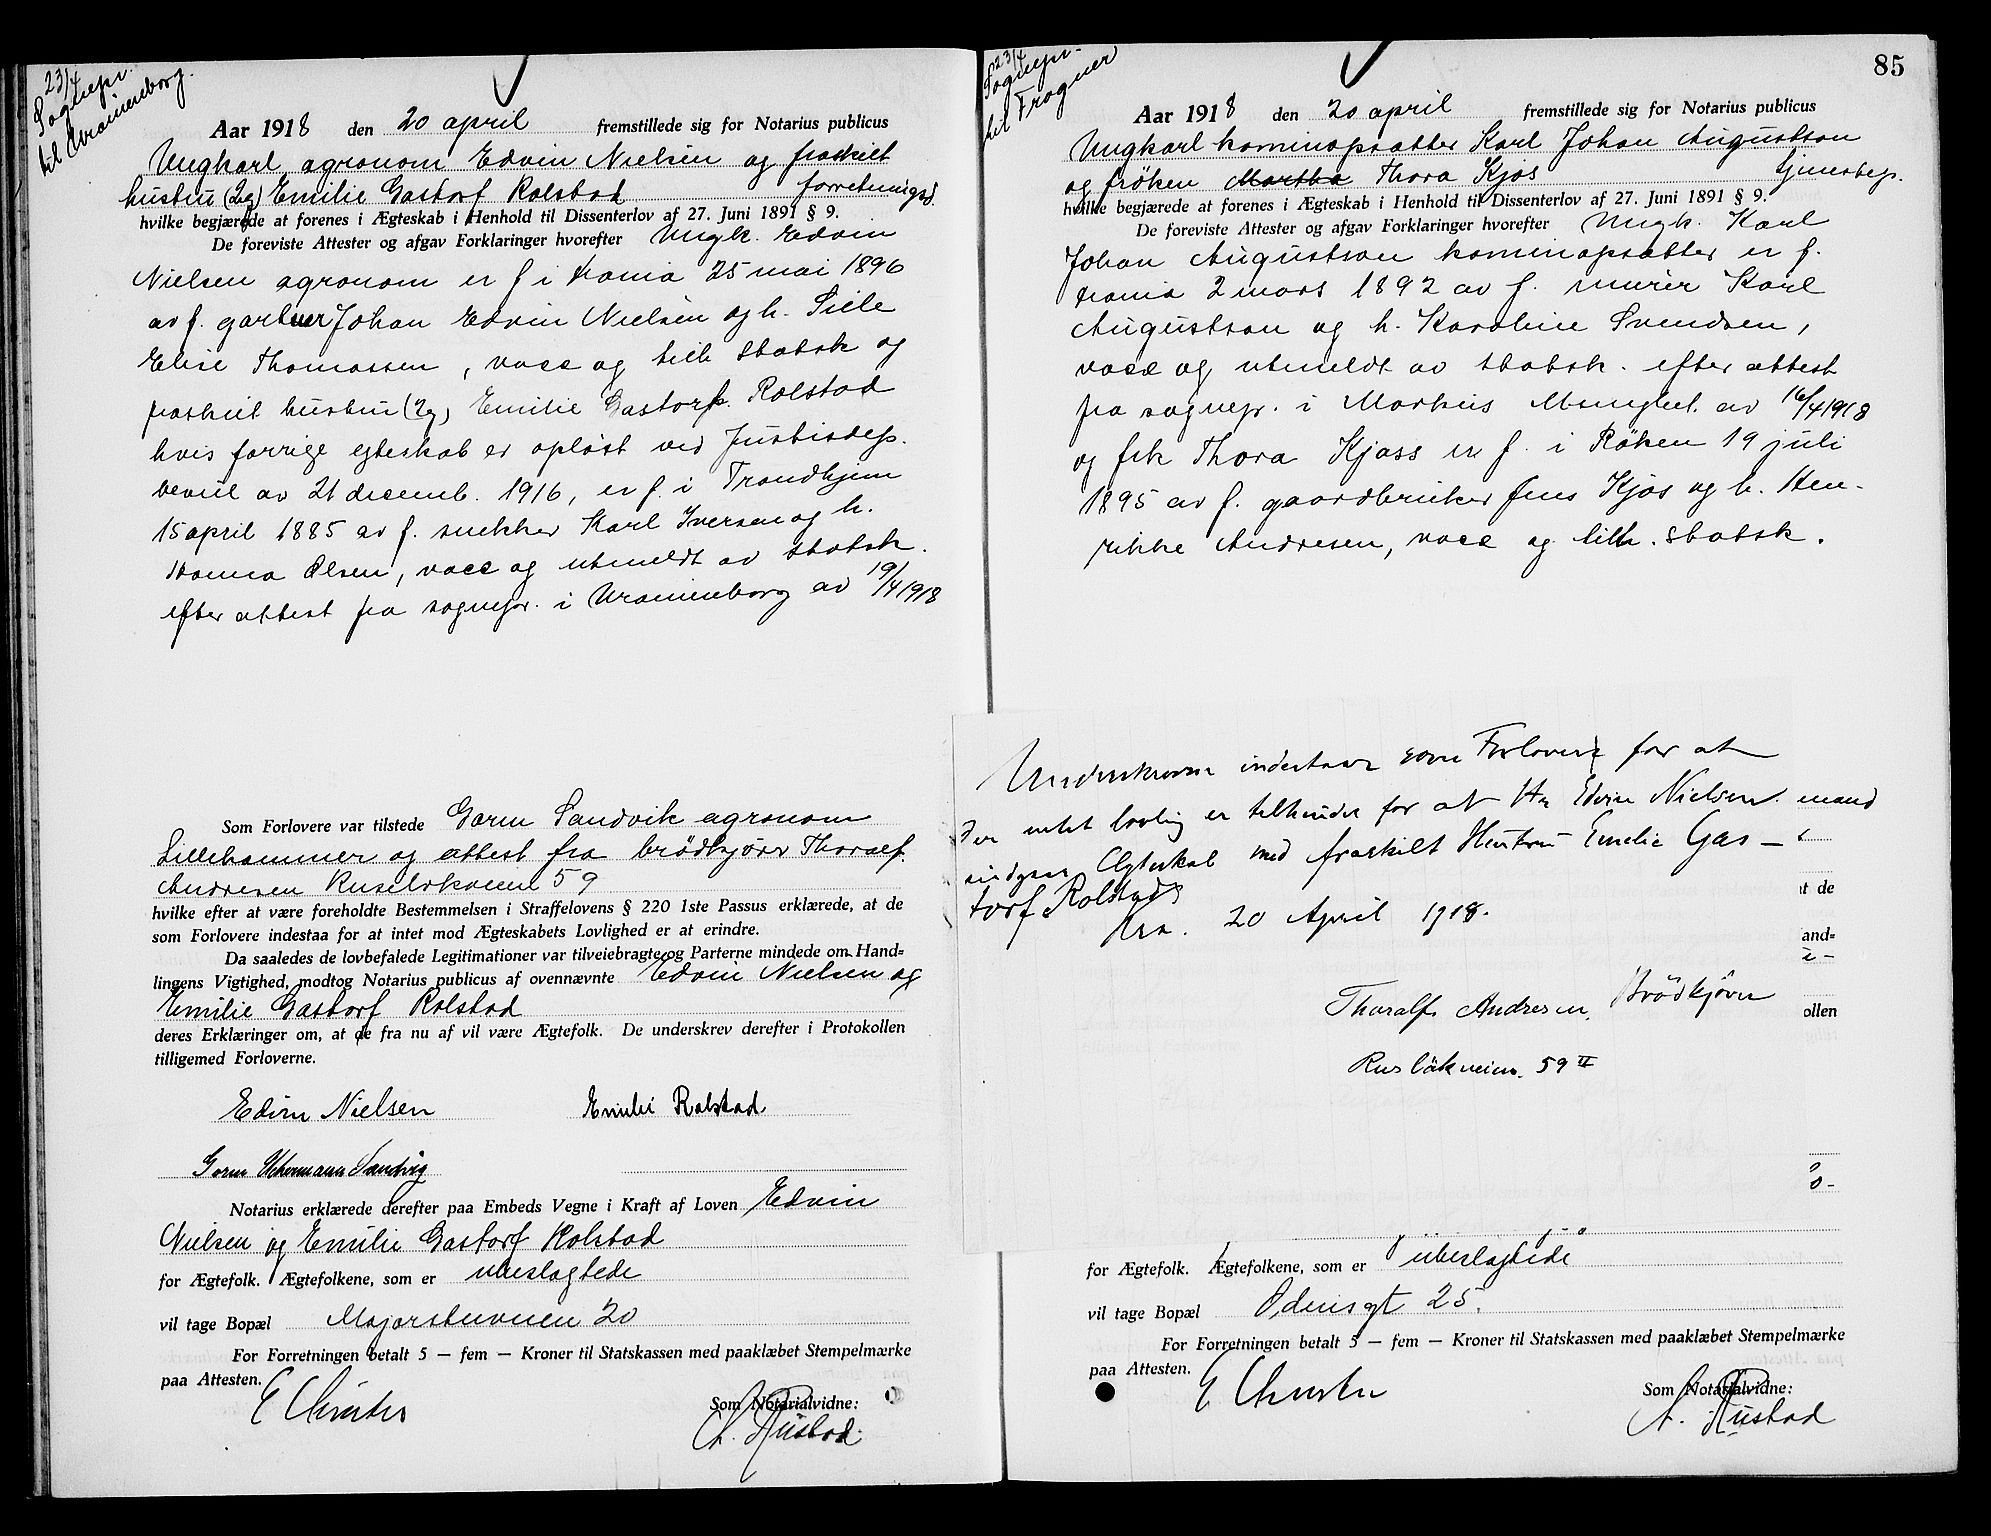 23/4
Sognepr.
til Uranienborg.
Aar 1918 den 20 april fremstillede sig for Notarius publicus
Ungkarl agronom Edvin Nielsen og fraskilt
hustru (2g) Emilie Gastorf Rolstad forretningsd.
hvilke begjærede at forenes i Ægteskab i Henhold til Dissenterlov af 27. Juni 1891 § 9.
De foreviste Attester og afgav Forklaringer hvorefter Ungk. Edvin
Nielsen agronom er f i Krania 25 mai 1896
av f. gartner Johan Edvin Nielsen og h.
Elise Thomassen, vacc og tilh statsk og
fraskilt hustru (2g) Emilie Gastorf Rolstad
hvis forrige egteskab er opløst ved Justisdep.
bevil av 21 decemb. 1916, er f. i Trondhjem
15 april 1885 av f. snekker Karl Iversen og h.
Hanna Olsen, vacc og utmeldt av statsk.
efter attest fra sognepr. i Uranienborg av 19/4 1918
Som Forlovere var tilstede Gorm Sandvik agronom
Lillehammer og attest fra brödkjörer Thoralf
Andresen Ruselökveien 59
hvilke efter at være foreholdte Bestemmelsen i Straffelovens § 220 1ste Passus erklærede, at de
som Forlovere indestaa for at intet mod Ægteskabets Lovlighed er at erindre.
Da saaledes de lovbefalede Legitimationer var tilveiebragte og Parterne mindede om Hand=
lingens Vigtighed, modtog Notarius publicus af ovennævnte Edvin Nielsen og
Emilie Gastorf Rolstad
deres Erklæringer om, at de fra nu af vil være Ægtefolk. De underskrev derefter i Protokollen
tilligemed Forloverne.
Edvin Nielsen Emilie Rolstad
Gorm Uchermann Sandvig
Notarius erklærede derefter paa Embeds Vegne i Kraft af Loven Edvin
Nielsen og Emilie Gastorf Rolstad
for Ægtefolk. Ægtefolkene, som er ubeslagtede
vil tage Bopæl Majorstuveien 20
For Forretningen betalt 5 — fem — Kroner til Statskassen med paaklæbet Stempelmærke
paa Attesten.
Som Notarialvidne:
Rustad
85
23/4
Sognepr.
til Frogner
Aar 1918 den 20 april fremstillede sig for Notarius publicus
Ungkarl kaminopsætter Karl Johan Augustson
og fröken Martha Thora Kjos tjenestep.
hvilke begjærede at forenes i Ægteskab i Henhold til Dissenterlov af 27. Juni 1891 § 9.
De foreviste Attester og afgav Forklaringer hvorefter Ungk. Karl
Johan Augustson kaminopsætter er f.
Krania 2 mars 1892 av f. murer Karl
Augustson og h. Karoline Svendsen,
vacc og utmeldt av statsk. efter attest
fra sognepr. i Markus Menighet. av 16/4 1918
og frk Thora Kjoss er f. i Röken 19 juli
1895 av f. gaardbruker Jens Kjos og h. Hen-
rikke Andresen, vacc og tilh. statsk.
Underskrevne indestaar som Forlover for at
der intet lovlig er tilhinder for at Hr Edvin Nielsen
indgaar Ægteskab med fraskilt Hustru Emelie Gas—
torf Rolstad
Kra. 20 April 1918.
Thoralf Andresen, Brödkjörer
Ruslökveien. 59 II
mand
t de
and=
ollen
for Ægtefolk. Ægtefolkene, som er ubeslagtede
vil tage Bopæl Odinsgt 25.
For Forretningen betalt 5 — fem — Kroner til Statskassen med paaklæbet Stempelmærke
paa Attesten.
Som Notarialvidne:
Rustad